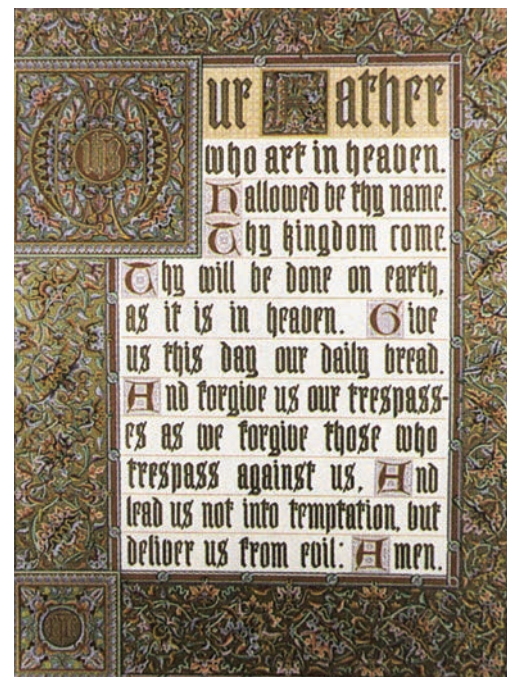 Our Father
who art in heaven.
Hallowed be thy name.
Thy kingdom come.
Thy will be done on earth,
as it is in heaven. Give
us this day our daily bread.
And forgive us our trespass-
es as we forgive those who
trespass against us, And
lead us not into temptation, but
deliver us from evil: Amen.